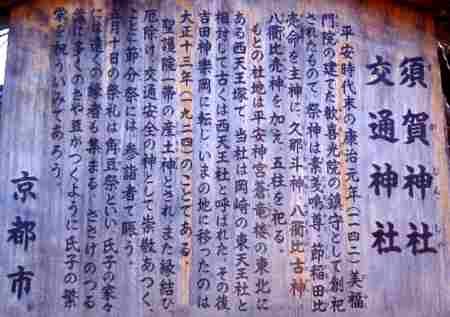 須賀神社
交通神社
平安時代末の康治元年(一一四二)美福
門院の建てた歓喜光院の鎮守として創祀
されたもので、祭神は素戔嗚尊、節稲田比
売命を主神に、久那斗神、八衢比古神
八衢比売神を加え、五柱を祀る。
もとの社地は平安神宮蒼竜楼の東北に
ある西天王塚で、当社は岡崎の東天王社と
相対して古くは西天王社と呼ばれた。その後
吉田神楽岡に転じ、いまの地に移ったのは
大正十三年(一九二四)のことである。
聖護院一帯の産土神とされ、また縁結び
厄除け、交通安全の神として崇敬あつく、
ことに節分祭には、参詣者で賑う。
五月十日の祭礼は角豆祭といい、氏子の家々
には遠くの縁者も集まる。ささげのつる
に多くのさや豆がつくように氏子の繁
栄を祝ういみであろう。
京都市